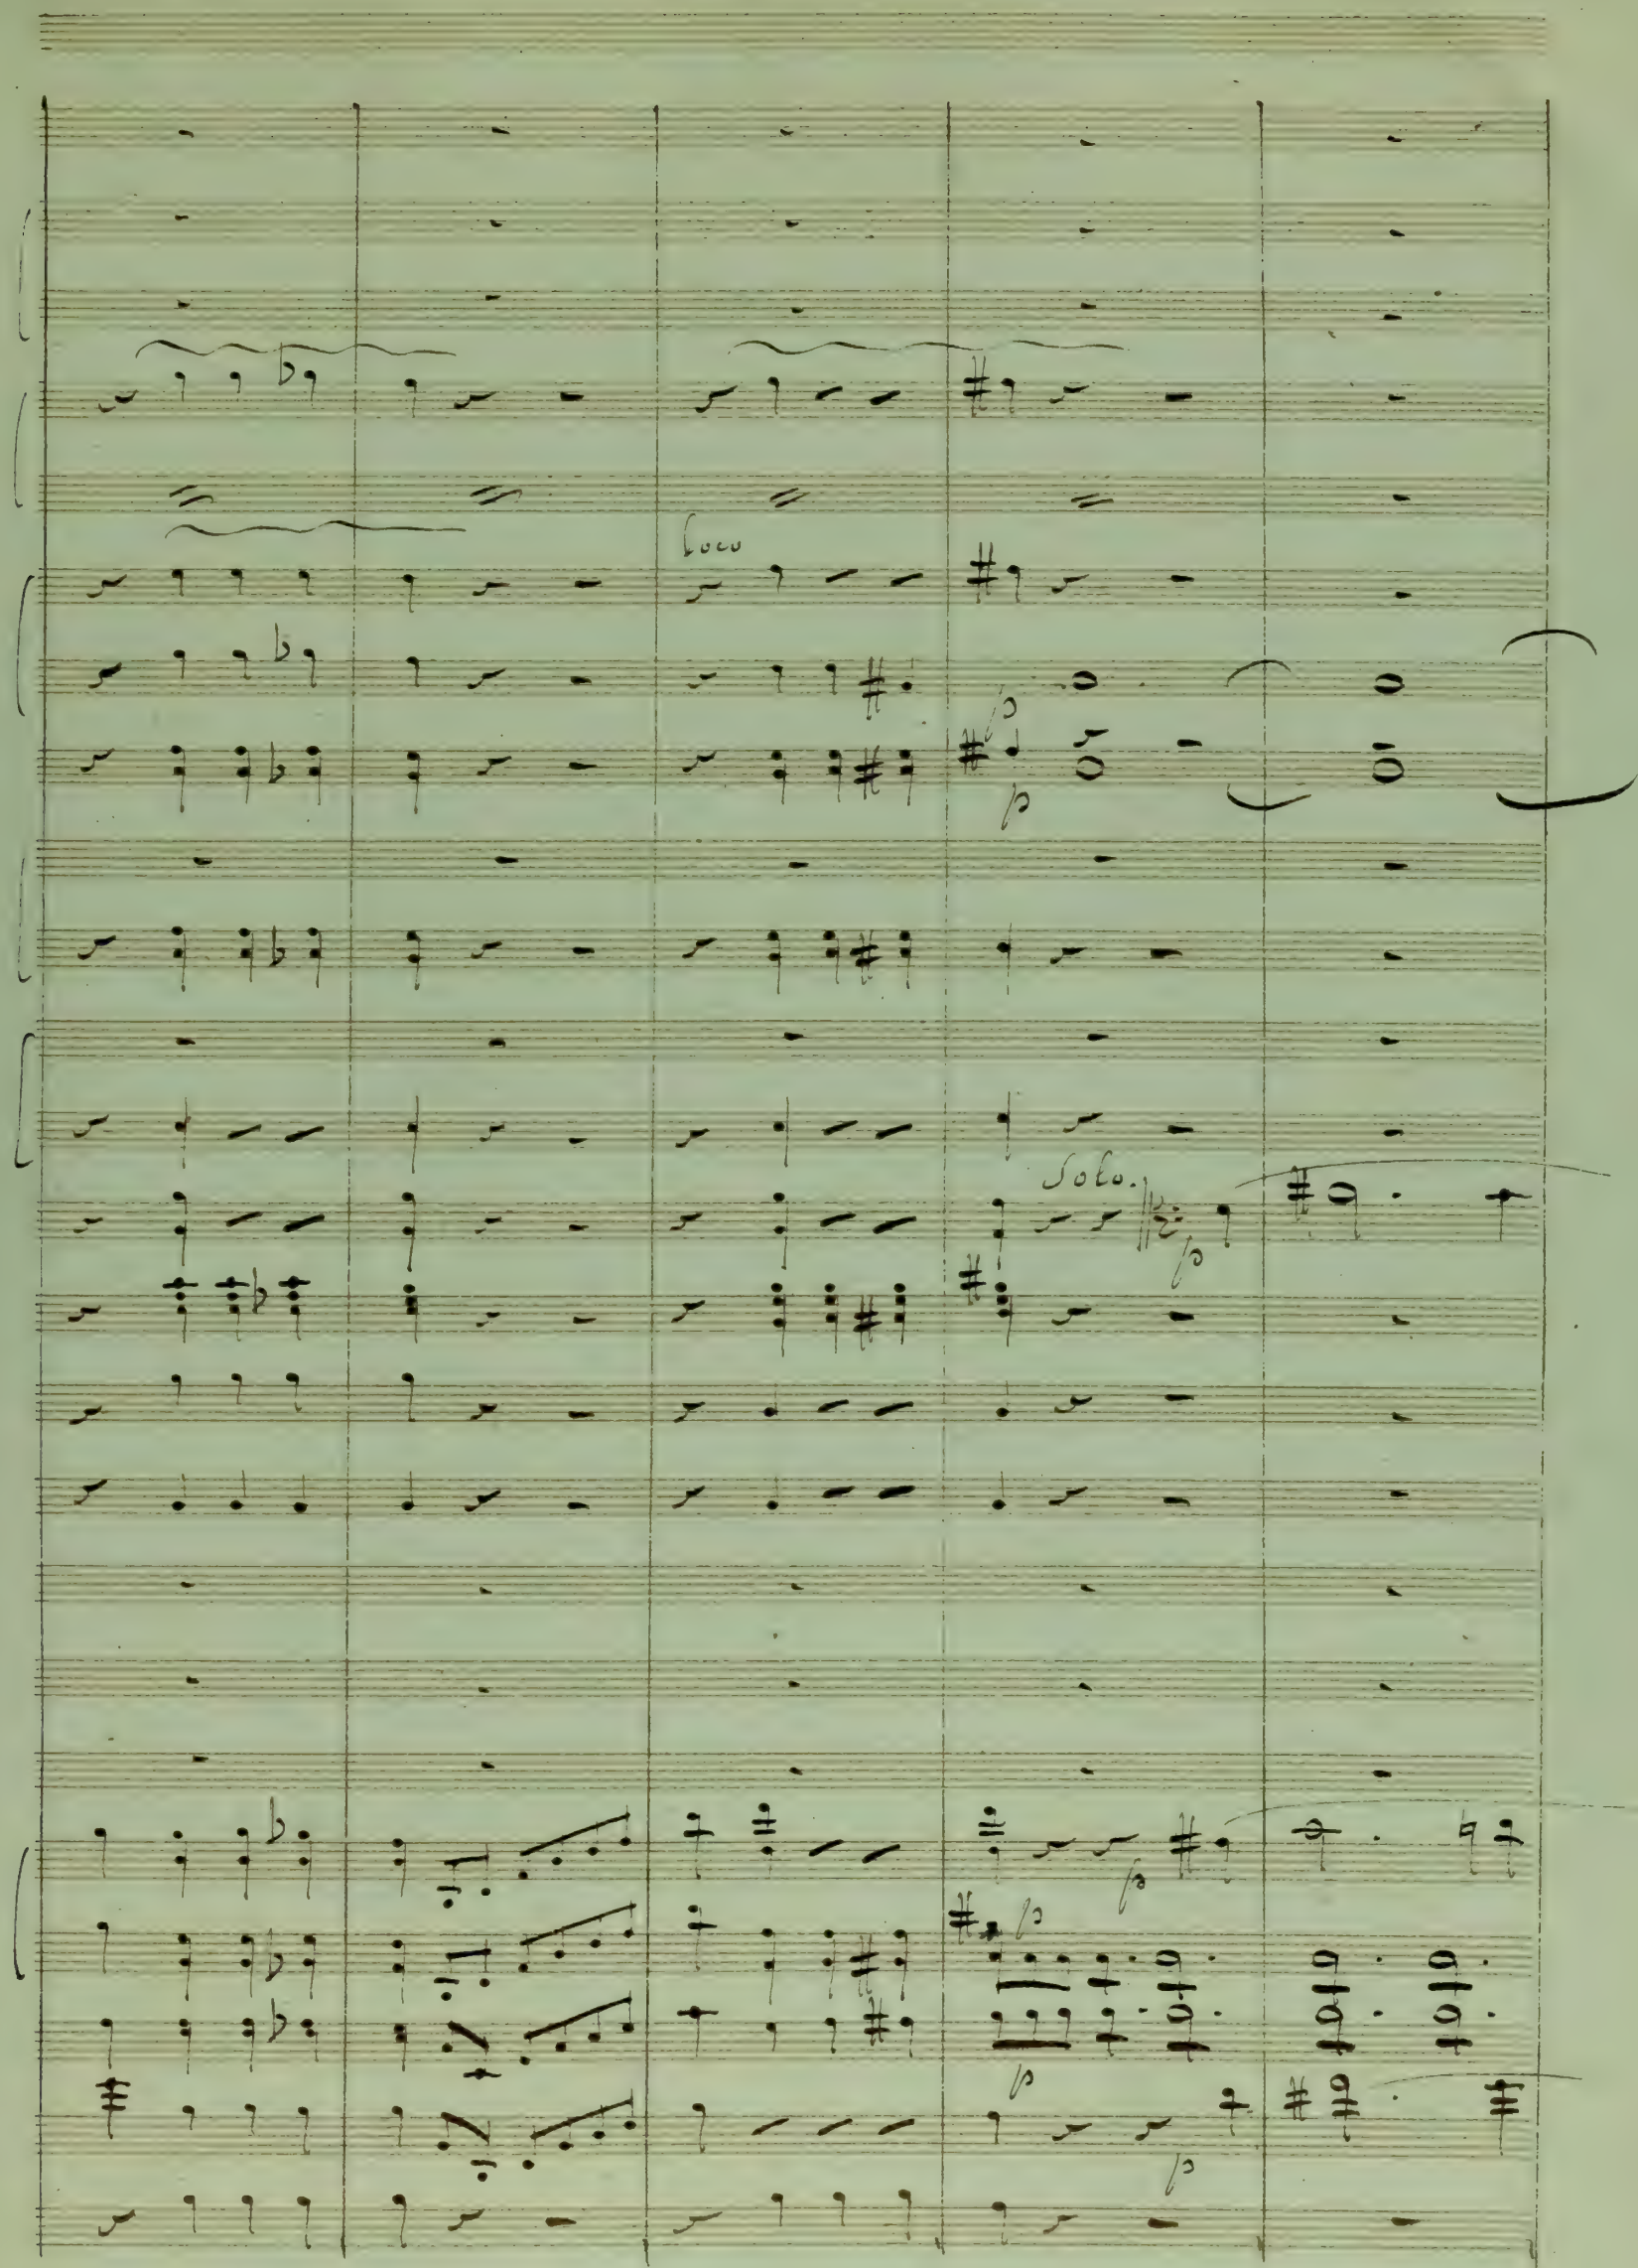 loco
p
p
Solo.
p
p
p
p
p